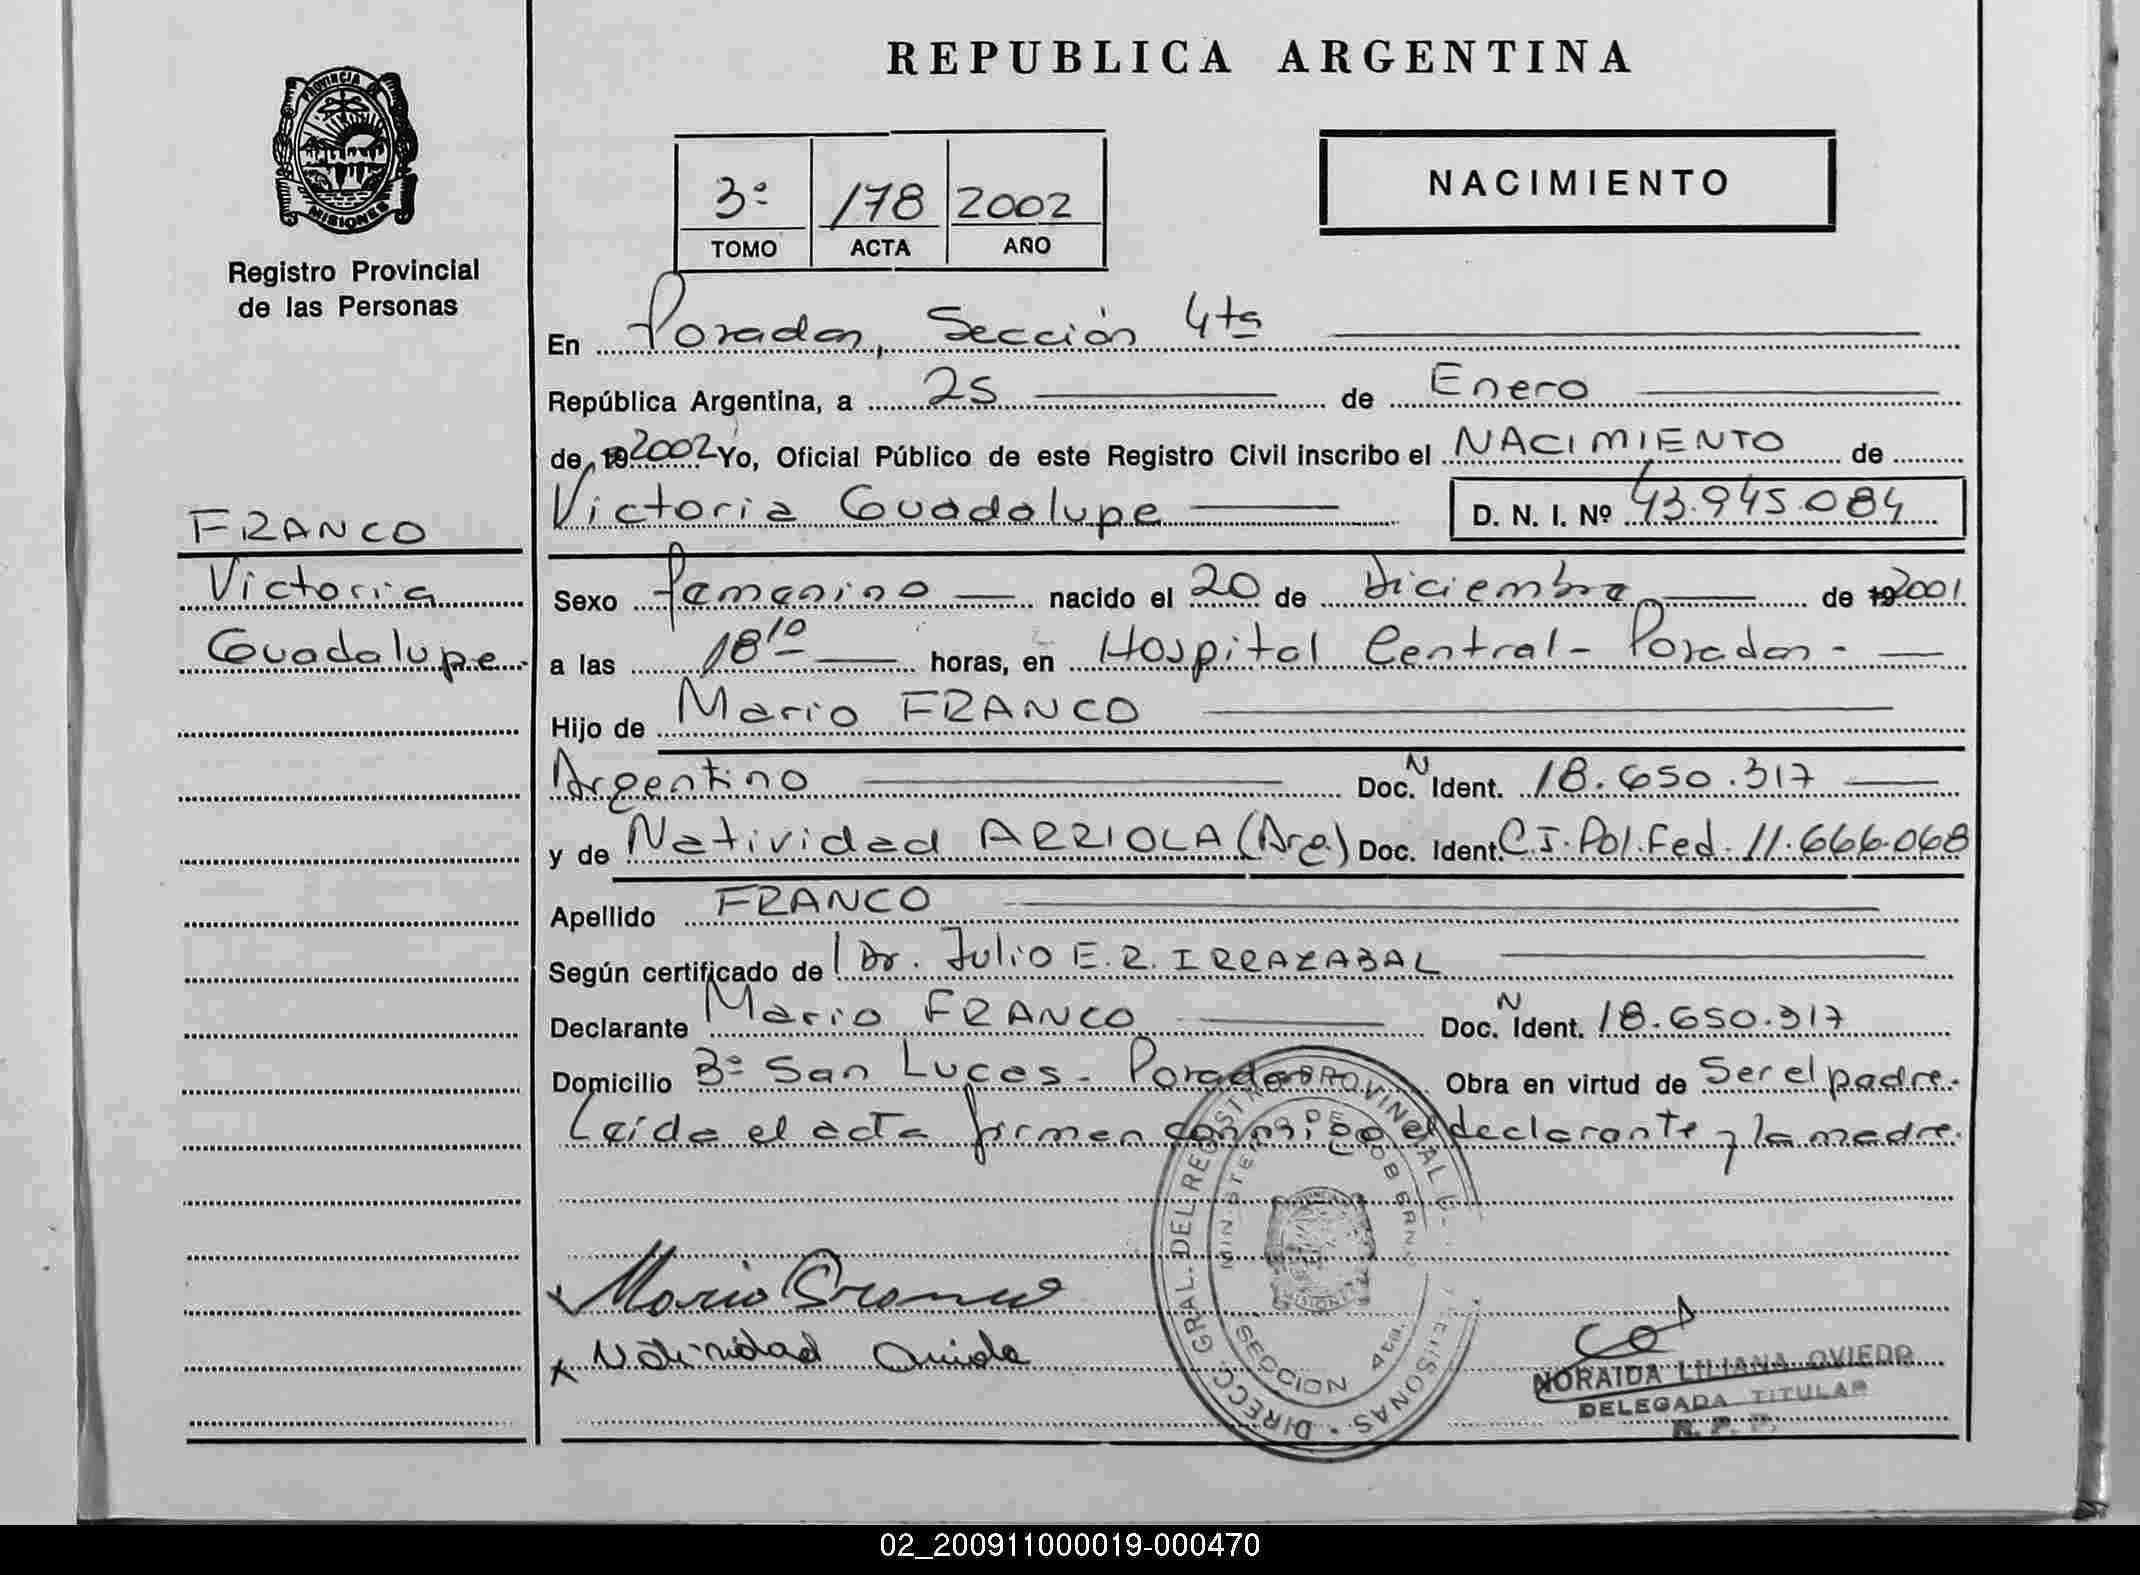 REPUBLICA ARGENTINA
PROVINCIA DE
MISIONES
Registro Provincial
de las Personas
NACIMIENTO
3º 178 2002
TOMO ACTA AÑO
En Posadas, Sección 4ta
República Argentina, a 25 de Enero
de 19 2002 Yo, Oficial Público de este Registro Civil inscribo el NACIMIENTO de
Victoria Guadalupe D. N. I. Nº 43.945.084
FRANCO
Victoria
Guadalupe.
Sexo Femenino nacido el 20 de Diciembre de 19 2001
a las 18 10 horas, en Hospital Central - Posadas -
Hijo de Mario FRANCO
Argentino Doc. N Ident. 18.650.317
y de Natividad ARRIOLA (Arg.) Doc. Ident. C.I. Pol. Fed. 11.666.068
Apellido FRANCO
Según certificado de Dr. Julio E. R. IRRAZABAL
Declarante Mario FRANCO Doc. N Ident. 18.650.317
Domicilio Bº San Lucas - Posadas Obra en virtud de Ser el padre.
Leída el acta firman conmigo el declarante y la madre.
Mario Franco
Natividad
DIRECC. GRAL. DEL REGISTRO PROVINCIAL
MINISTERIO DE GOBIERNO
SECCION 4ta.
NORAIDA LILIANA OVIEDO
DELEGADA TITULAR
R. P. P.
02_200911000019-000470